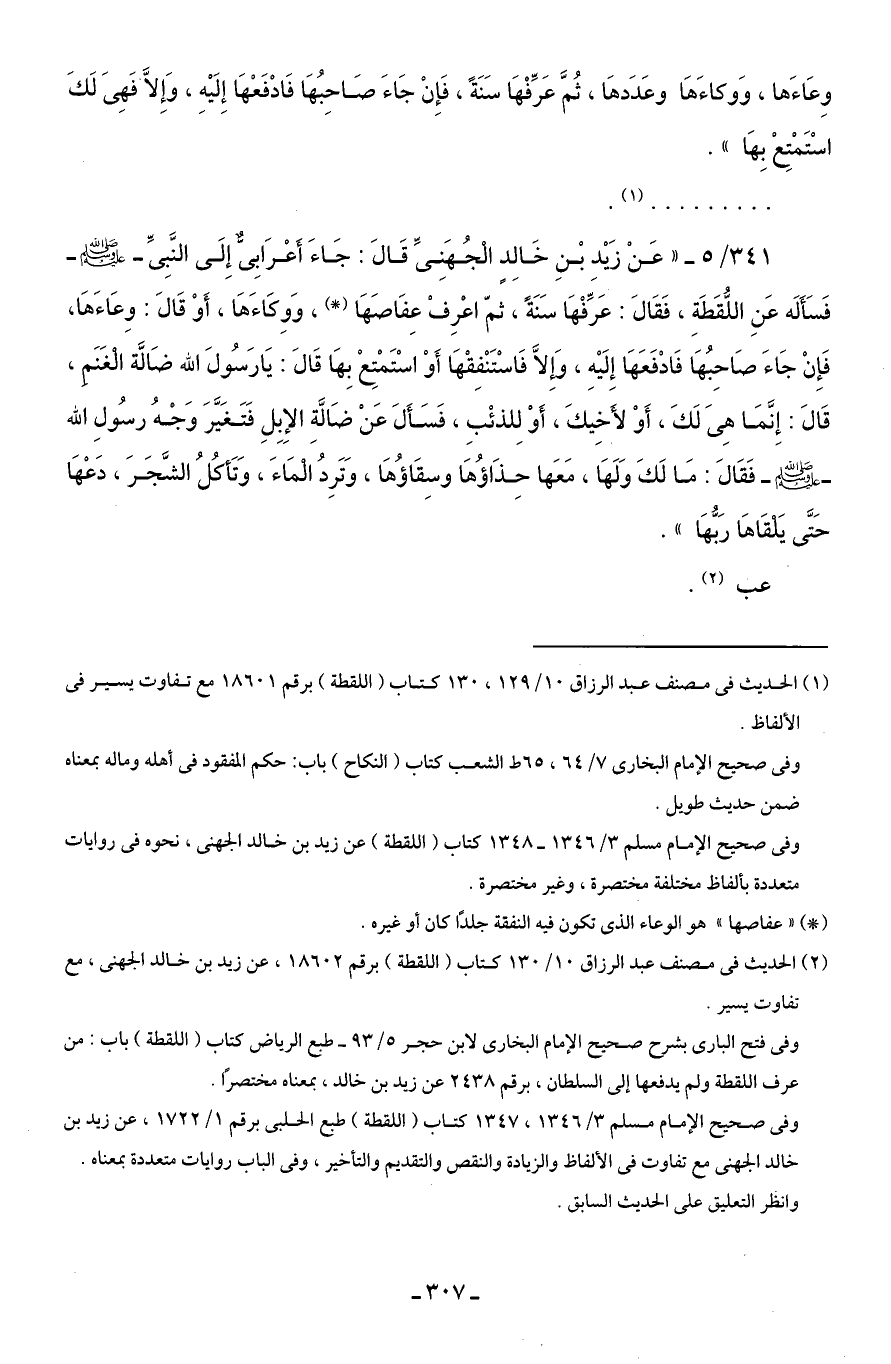 وِعَاءَها ، وَوكاءَهَا وعَدَدهَا ، ثُمَّ عَرِّفْهَا سَنَةً ، فَإِنْ جَاءَ صَـاحِبُهَا فَادْفَعْهَا إِلَيْهِ ، وَإِلاَّ فَهِىَ لَكَ
اسْتَمْتِعْ بِهَا » .
. . . . . . . . . (١) .
٣٤١/ ٥ ـ « عَـنْ زَيْدِ بْـنِ خَـالدٍ الْجُـهَنِـىِّ قَـالَ : جَـاءَ أَعْـرَابِىٌّ إِلَـى النَّبِىِّ ـ ﷺ ـ
فَسَأَلَه عَنِ اللُّقَطَةِ ، فَقَالَ : عَرِّفْهَا سَنَةً ، ثمّ اعْرِفْ عفَاصَهَا (*) ، وَوِكَاءَهَا ، أَوْ قَالَ : وعَاءَهَا،
فَإِنْ جَاءَ صَاحِبُهَا فَادْفَعَهَا إِلَيْهِ ، وَإلاَّ فَاسْتَنْفِقْهَا أَوْ اسْتَمْتِعْ بِهَا قَالَ : يَارَسُولَ الله ضَالَّة الْغَنَمِ ،
قَالَ : إِنَّمَـا هِىَ لَكَ ، أَوْ لأَخِيكَ ، أَوْ للذئْبِ ، فَسَأَلَ عَنْ ضَالَّةِ الإِبِلِ فَتَـغَيَّرَ وَجْـهُ رسُولِ الله
ـ ﷺ ـ فَقَالَ : مَـا لَكَ وَلَهَا ، مَعَها حِـذَاؤُهَا وسِقَاؤُهَا ، وَتَرِدُ الْمَاءَ ، وَتَأكُلُ الشَّجَـرَ ، دَعْهَا
حَتَّى يَلْقَاهَا رَبُّهَا » .
عب (٢) .
(١) الحـديث فى مـصنف عبـد الرزاق ١٠/ ١٢٩ ، ١٣٠ كـتـاب ( اللقطة ) برقم ١٨٦٠١ مع تـفاوت يسـيـر فى
الألفاظ .
وفى صحيح الإمام البخارى ٧/ ٦٤ ، ٦٥ط الشعـب كتاب ( النكاح ) باب: حكم المفقود فى أهله وماله بمعناه
ضمن حديث طويل .
وفى صحيح الإمـام مسلم ٣/ ١٣٤٦ ـ ١٣٤٨ كتاب ( اللقطة ) عن زيد بن خـالد الجهنى ، نحوه فى روايات
متعددة بألفاظ مختلفة مختصرة ، وغير مختصرة .
(*) « عفاصها » هو الوعاء الذى تكون فيه النفقة جلدًا كان أو غيره .
(٢) الحديث فى مـصنف عبد الرزاق ١٠/ ١٣٠ كـتاب ( اللقطة ) برقم ١٨٦٠٢ ، عن زيد بن خـالد الجهنى ، مع
تفاوت يسير .
وفى فتح البارى بشرح صـحيح الإمام البخارى لابن حجـر ٥/ ٩٣ ـ طبع الرياض كتاب ( اللقطة ) باب : من
عرف اللقطة ولم يدفعها إلى السلطان ، برقم ٢٤٣٨ عن زيد بن خالد ، بمعناه مختصرًا .
وفى صـحيح الإمـام مـسلم ٣/ ١٣٤٦ ، ١٣٤٧ كتـاب ( اللقطة ) طبع الحـلبى برقم ١/ ١٧٢٢ ، عن زيـد بن
خالد الجهنى مع تفاوت فى الألفاظ والزيادة والنقص والتقديم والتأخير ، وفى الباب روايات متعددة بمعناه .
وانظر التعليق على الحديث السابق .
ـ ٣٠٧ ـ